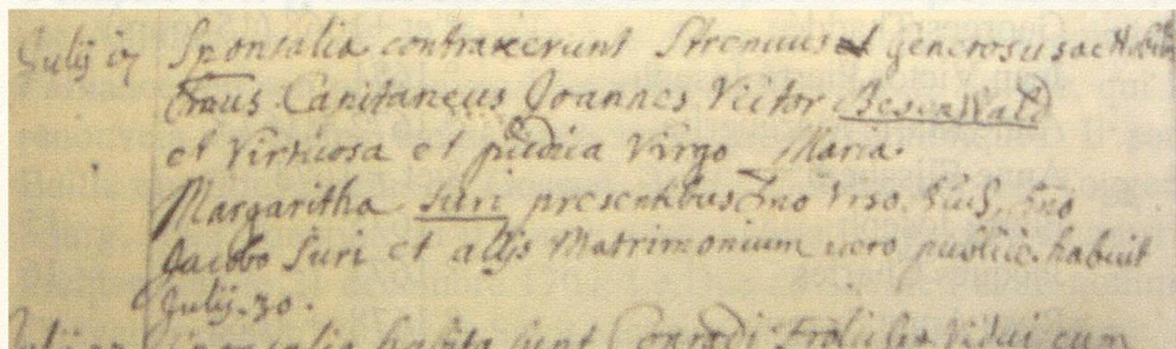 Julij 17 Sponsalia contraxerunt Strenuus et Generosus ac Nobi
Dnus Capitaneus Joannes Victor Besenwald
et Virtuosa et pudica Virgo Maria
Margaritha Suri presentibus Dno Urso Suri, Dno
Jacobo Suri et alijs Matrimonium vero publice habuit
Julij. 30.
Sponsalia habita sunt Conradi Frölicher Vidui cum